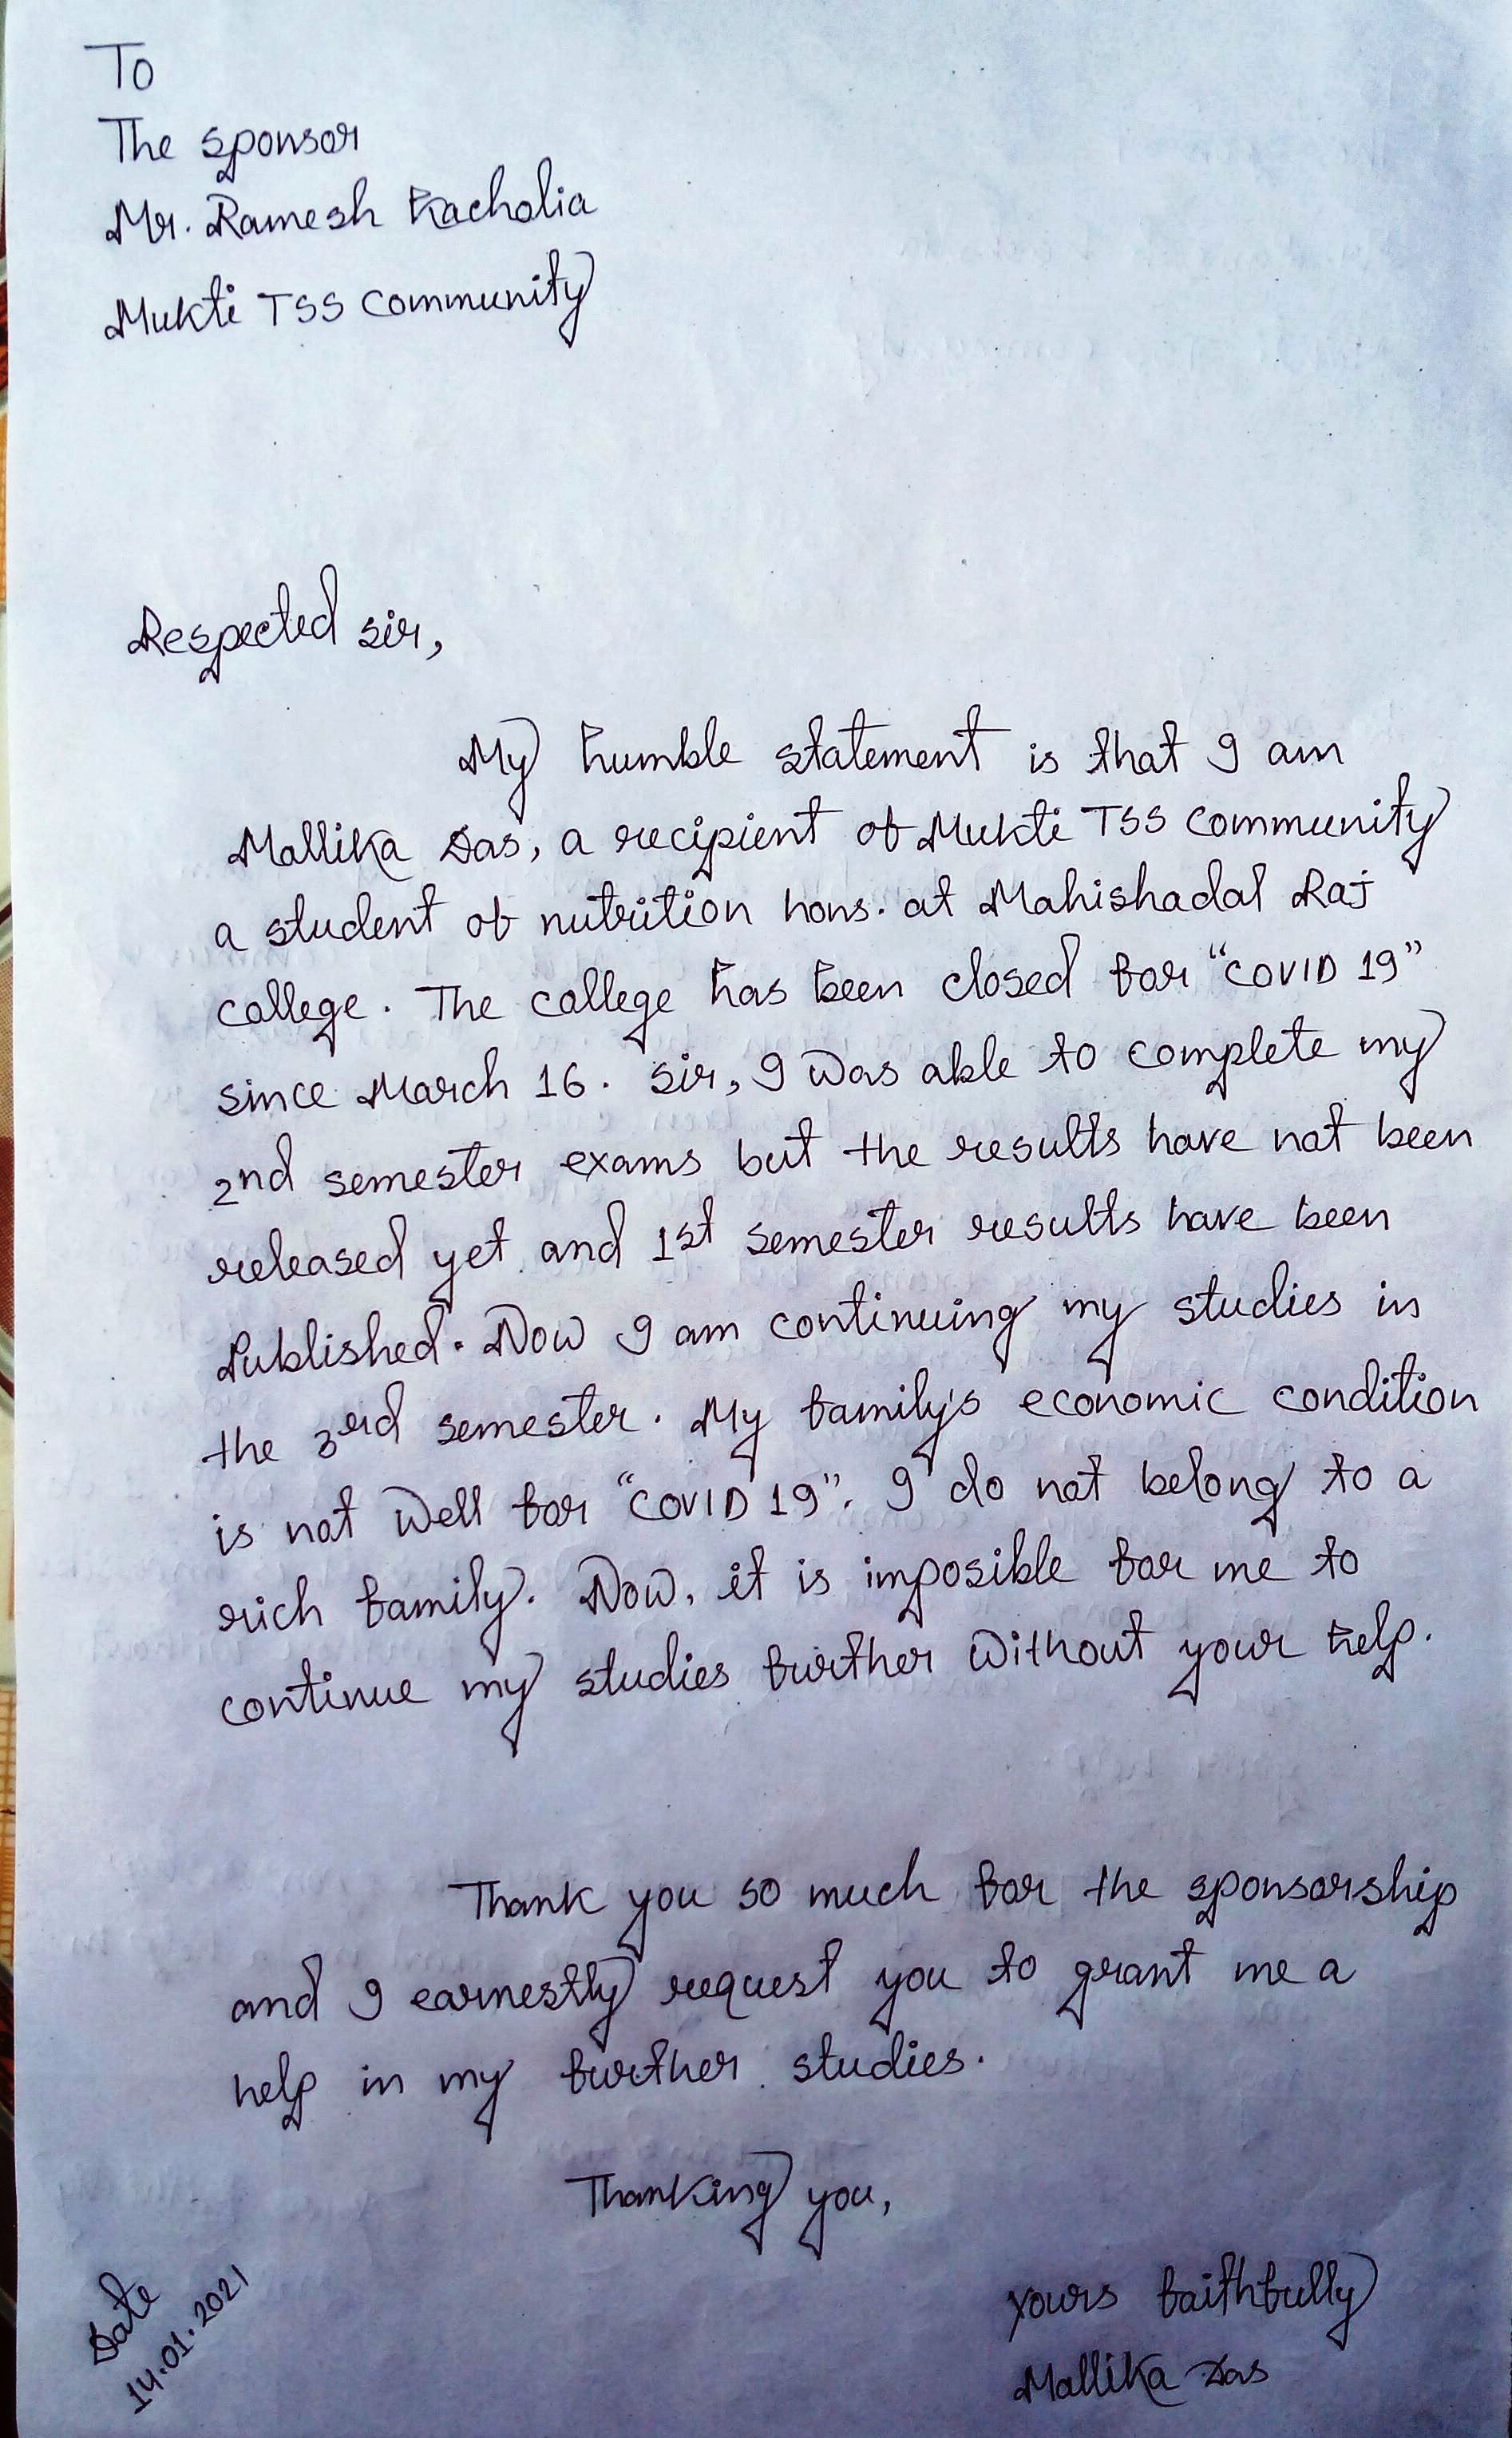 To
The sponsor
Mr. Ramesh Kacholia
Mukti TSS Community
Respected sir,
My humble statement is that I am
Mallika Das, a recipient of Mukti TSS Community
a student of nutrition hons. at Mahishadal Raj
college. The college has been closed for "COVID 19"
since March 16. Sir, I was able to complete my
2nd semester exams but the results have not been
released yet and 1st semester results have been
Published. Now I am continuing my studies in
the 3rd semester. My family's economic condition
is not well for "COVID 19". I do not belong to a
rich family. Now, it is imposible for me to
continue my studies further without your help.
Thank you so much for the sponsorship
and I earnestly request you to grant me a
help in my further studies.
Thanking you,
Yours faithfully
Mallika Das
Date
14.01.2021